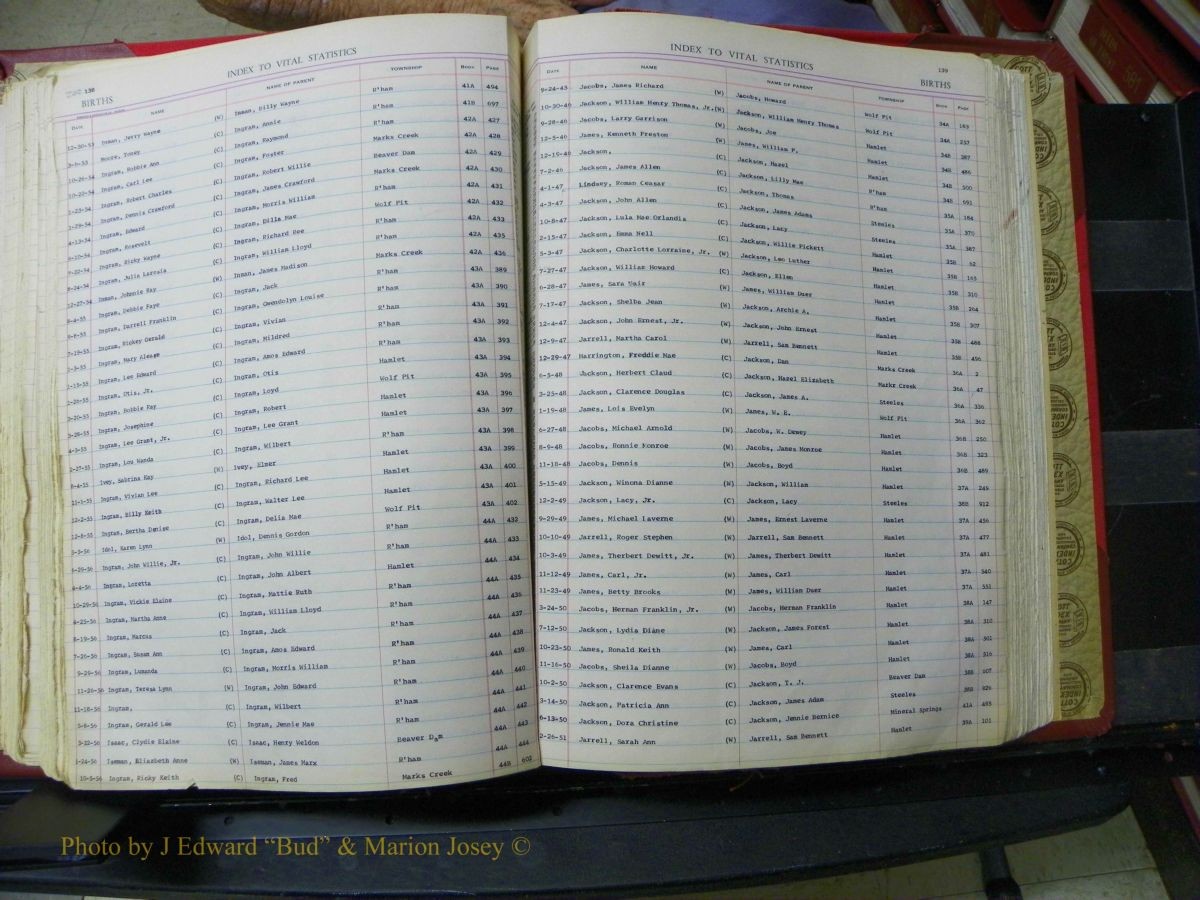 138
INDEX TO VITAL STATISTICS
BIRTHS
DATE NAME NAME OF PARENT TOWNSHIP BOOK PAGE
12-30-53 Inman, Jerry Wayne (W) Inman, Billy Wayne R'ham 41A 494
Moore, Toney (C) Ingram, Annie R'ham 41B 697
10-26-54 Ingram, Robbie Ann (C) Ingram, Raymond R'ham 42A 427
10-22-54 Ingram, Carl Lee (C) Ingram, Foster Marks Creek 42A 428
1-23-54 Ingram, Robert Charles (C) Ingram, Robert Willie Beaver Dam 42A 429
1-29-54 Ingram, Dennis Crawford (C) Ingram, James Crawford Marks Creek 42A 430
4-13-54 Ingram, Edward (C) Ingram, Morris William R'ham 42A 431
Ingram, Rosevelt (C) Ingram, Dilla Mae Wolf Pit 42A 432
Ingram, Ricky Wayne (C) Ingram, Richard R'ham 42A 433
8-24-54 Ingram, Julia (C) Ingram, William Lloyd R'ham 42A 435
12-27-54 Inman, Johnnie Ray (W) Inman, James Madison Marks Creek 42A 436
Ingram, Debbie Faye (C) Ingram, Jack R'ham 43A 389
Ingram, Darrell Franklin (C) Ingram, Gwendolyn Louise R'ham 43A 390
7-19-55 Ingram, Rickey Gerald (C) Ingram, Vivian R'ham 43A 391
Ingram, Mary (C) Ingram, Mildred R'ham 43A 392
Ingram, Lee Edward (C) Ingram, Amos Edward R'ham 43A 393
Ingram, Otis, Jr. (C) Ingram, Otis Hamlet 43A 394
Ingram, Bobbie Fay (C) Ingram, Loyd Wolf Pit 43A 395
Ingram, Josephine (C) Ingram, Robert Hamlet 43A 396
4-3-55 Ingram, Lee Grant, Jr. (C) Ingram, Lee Grant Hamlet 43A 397
Ingram, Lou Wanda (C) Ingram, Wilbert R'ham 43A 398
8-4-55 Ivey, Sabrina Kay (W) Ivey, Elmer Hamlet 43A 399
11-1-55 Ingram, Vivian Lee (C) Ingram, Richard Lee Hamlet 43A 400
12-2-55 Ingram, Billy Keith (C) Ingram, Walter Lee Hamlet 43A 401
12-8-55 Ingram, Bertha Denise (C) Ingram, Delia Mae Wolf Pit 43A 402
Idol, Karen Lynn (W) Idol, Dennis Gordon R'ham 44A 432
Ingram, John Willie, Jr. (C) Ingram, John Willie R'ham 44A 433
Ingram, Loretta (C) Ingram, John Albert Hamlet 44A 434
10-29-56 Ingram, Vickie Elaine (C) Ingram, Mattie Ruth R'ham 44A 435
4-25-56 Ingram, Martha Anne (C) Ingram, William Lloyd R'ham 44A 436
8-19-56 Ingram, Marcus (C) Ingram, Jack R'ham 44A 437
7-26-56 Ingram, Susan Ann (C) Ingram, Amos Edward R'ham 44A 438
9-29-56 Ingram, Lumanda (C) Ingram, Morris William R'ham 44A 439
11-26-56 Ingram, Teresa Lynn (W) Ingram, John Edward R'ham 44A 440
11-18-56 Ingram, (C) Ingram, Wilbert 44A 441
5-8-56 Ingram, Gerald Lee (C) Ingram, Jennie Mae R'ham 44A 442
3-22-56 Isaac, Clydie Elaine (C) Isaac, Henry Weldon Beaver Dam 44A 443
1-24-56 Iseman, Elizabeth Anne (W) Iseman, James Marx R'ham 44A 444
10-5-56 Ingram, Ricky Keith (C) Ingram, Fred Marks Creek 44B 602
INDEX TO VITAL STATISTICS
139
BIRTHS
DATE NAME NAME OF PARENT TOWNSHIP BOOK PAGE
9-24-43 Jacobs, James Richard (W) Jacobs, Howard Wolf Pit 34A 163
10-30-46 Jackson, William Henry Thomas, Jr. (W) Jackson, William Henry Thomas Wolf Pit 34A 257
9-28-46 Jacobs, Larry Garrison (W) Jacobs, Joe Hamlet 34B 387
12-5-46 James, Kenneth Preston (W) James, William P. Hamlet 34B 486
12-19-46 Jackson, (C) Jackson, Hazel Hamlet 34B 500
7-2-46 Jackson, James Allen (C) Jackson, Lilly Mae R'ham 34B 691
4-1-47 Lindsey, Roman Ceasar (C) Jackson, Thomas R'ham 35A 184
4-3-47 Jackson, John Allen (C) Jackson, James Adams Steeles 35A 370
10-8-47 Jackson, Lula Mae Orlandia (C) Jackson, Lacy Steeles 35A 387
2-15-47 Jackson, Emma Nell (C) Jackson, Willie Pickett Hamlet 35B 62
5-3-47 Jackson, Charlotte Lorraine, Jr. (W) Jackson, Leo Luther Hamlet 35B 165
7-27-47 Jackson, William Howard (C) Jackson, Ellen Hamlet 35B 310
6-28-47 James, Sara (W) James, William Duer Hamlet 35B 264
7-17-47 Jackson, Shelba Jean (W) Jackson, Archie A. Hamlet 35B 307
12-4-47 Jackson, John Ernest, Jr. (W) Jackson, John Ernest Hamlet 35B 488
12-9-47 Jarrell, Martha Carol (W) Jarrell, Sam Bennett Hamlet 35B 496
12-29-47 Harrington, Freddie Mae (C) Jackson, Dan Marks Creek 36A 2
6-5-48 Jackson, Herbert Claud (C) Jackson, Hazel Elizabeth Markr Creek 36A 47
3-25-48 Jackson, Clarence Douglas (C) Jackson, James A. Steeles 36A 336
1-19-48 James, Lois Evelyn (W) James, W. E. Wolf Pit 36A 362
6-27-48 Jacobs, Michael Arnold (W) Jacobs, W. Dewey Hamlet 36B 250
8-9-48 Jacobs, Ronnie Monroe (W) Jacobs, James Monroe Hamlet 36B 323
11-18-48 Jacobs, Dennis (W) Jacobs, Boyd Hamlet 36B 489
5-15-49 Jackson, Winona Dianne (W) Jackson, William Hamlet 37A 249
12-2-49 Jackson, Lacy, Jr. (C) Jackson, Lacy Steeles 36B 912
9-29-49 James, Michael Laverne (W) James, Ernest Laverne Hamlet 37A 456
10-10-49 Jarrell, Roger Stephen (W) Jarrell, Sam Bennett Hamlet 37A 477
10-3-49 James, Therbert Dewitt, Jr. (W) James, Therbert Dewitt Hamlet 37A 481
11-12-49 James, Carl, Jr. (W) James, Carl Hamlet 37A 540
11-23-49 James, Betty Brooks (W) James, William Duer Hamlet 37A 551
3-24-50 Jacobs, Herman Franklin, Jr. (W) Jacobs, Herman Franklin Hamlet 38A 147
7-12-50 Jackson, Lydia Diane (W) Jackson, James Forest Hamlet 38A 310
10-23-50 James, Ronald Keith (W) James, Carl Hamlet 38A 501
11-16-50 Jacobs, Sheila Dianne (W) Jacobs, Boyd Hamlet 38A 516
10-2-50 Jackson, Clarence Evans (C) Jackson, T. J. Beaver Dam 38B 107
3-14-50 Jackson, Patricia Ann (C) Jackson, James Adam Steeles 38B 826
6-13-50 Jackson, Dora Christine (C) Jackson, Jennie Bernice Mineral Springs 41A 493
2-26-51 Jarrell, Sarah Ann (W) Jarrell, Sam Bennett Hamlet 39A 101
Photo by J Edward “Bud” & Marion Josey ©